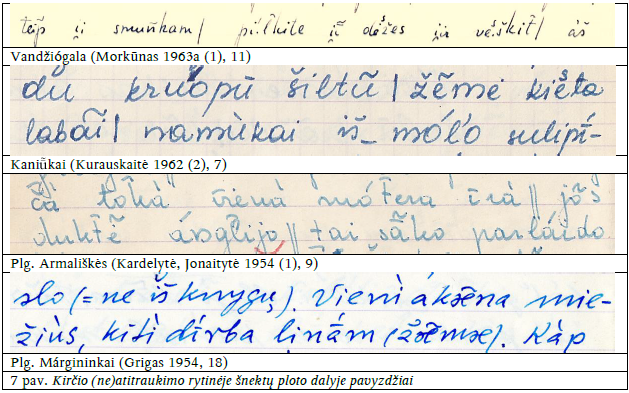 teĩp ir smuñkam/ pil̃kite iž dėžes ir vėškit/ aš
Vandžiógala (Morkūnas 1963a (1), 11)
du kruopū šiltū | žẽmė kíeta
labaĩ | namùkai iš mólo sulipí-
Kaniū̃kai (Kurauskaitė 1962 (2), 7)
čà tokà vienà mótera ĩrà || jõs
duktė̃ ánglijo || tai sãko parláido
Plg. Armališkės (Kardelytė, Jonaitytė 1954 (1), 9)
slo (= ne iš knygų). Vienì áksẽna mie-
žiùs, kitì dírba linám (žẽmæ). Kàp
Plg. Márgininkai (Grigas 1954, 18)
7 pav. Kirčio (ne)atitraukimo rytinėje šnektų ploto dalyje pavyzdžiai